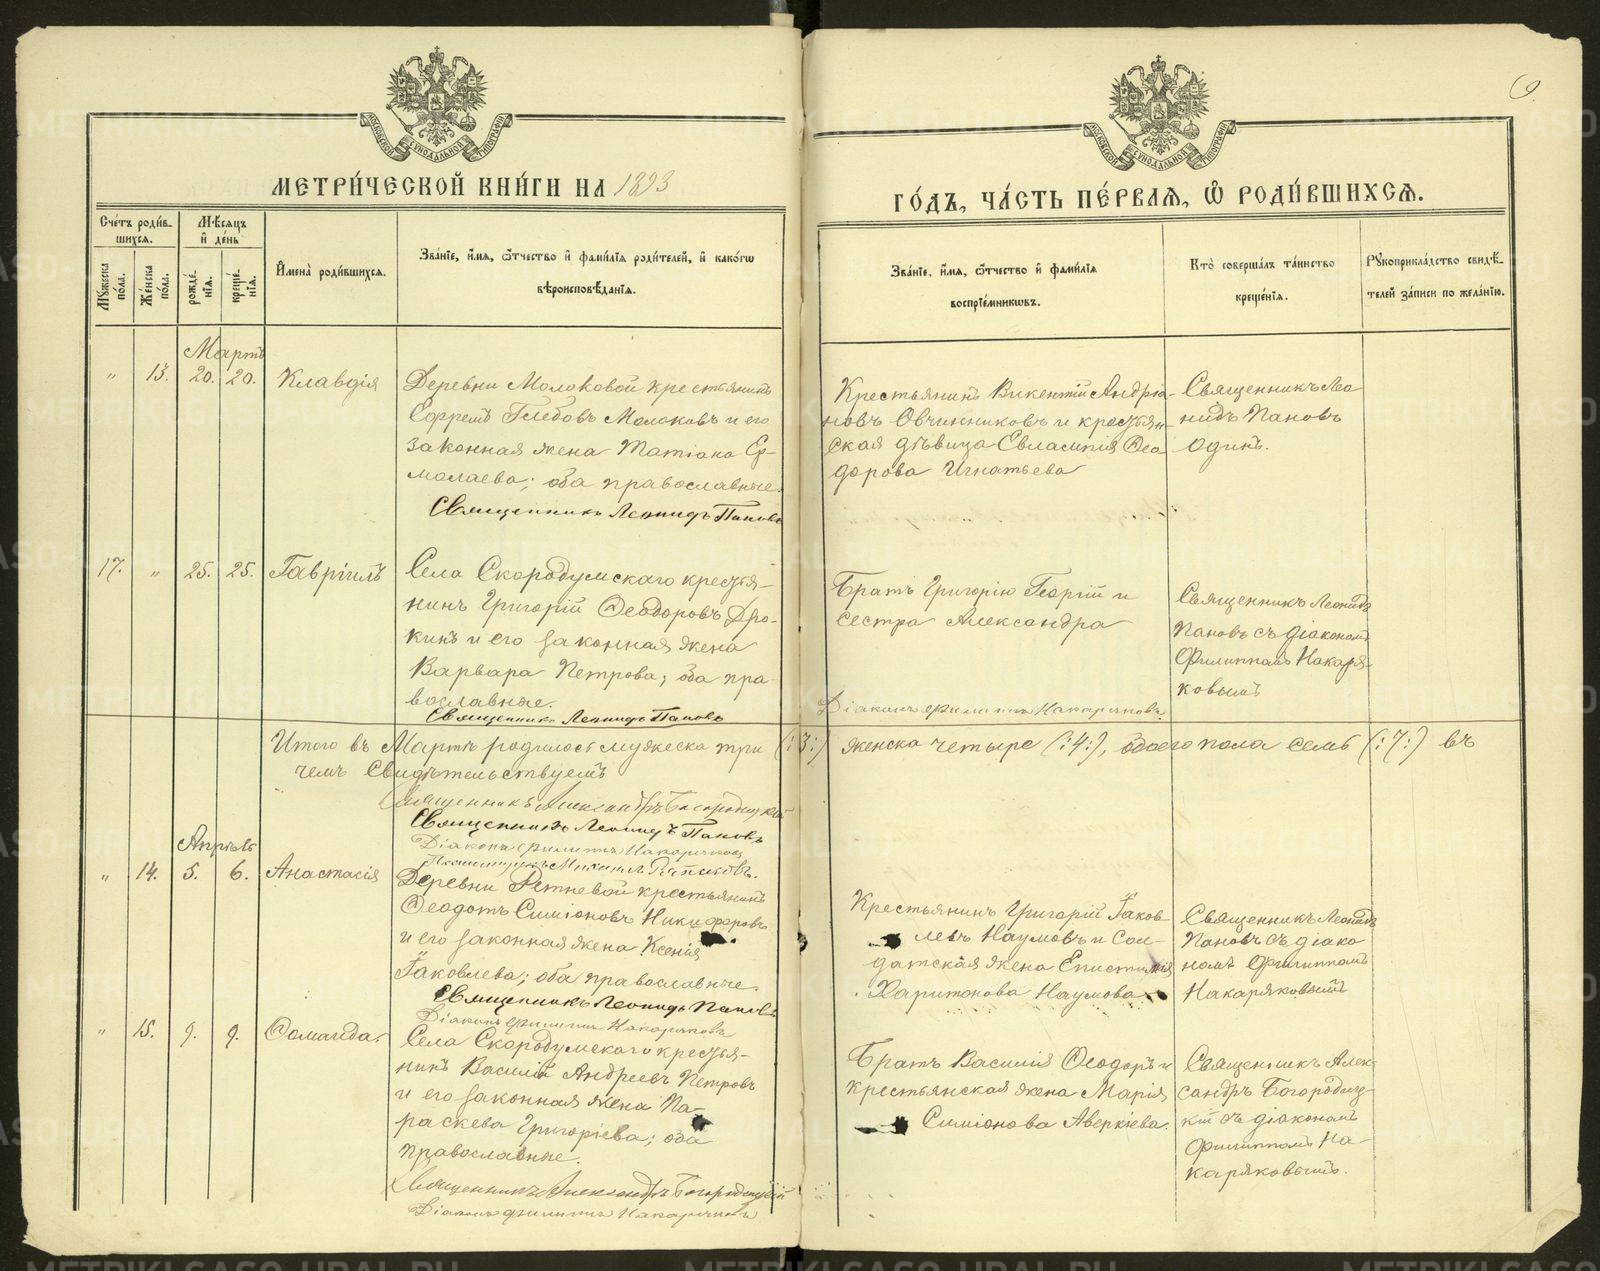 МЕТРИ́ЧЕСКОЙ КНИ́ГИ НА 1893
ГО́ДЪ, ЧА́СТЬ ПЕ́РВАЯ, Ѽ РОДИ́ВШИХСЯ.
9.
МОСКОВСКОЙ СѴНОДАЛЬНОЙ ТИПОГРАФІИ
МОСКОВСКОЙ СѴНОДАЛЬНОЙ ТИПОГРАФІИ
Сче́тъ роди́в-
шихся.
Мѣ́сяцъ
и҆ де́нь
Му́жеска
по́ла.
Же́нска
по́ла.
рожде́-
нїя.
креще́-
нїя.
И҆мена̀ роди́вшихся.
Зва́нїе, и҆́мя, ѻ҆́тчество и҆ фами́лїя роди́телей, и҆ како́гѡ
вѣроисповѣ́данїя.
Зва́нїе, и҆́мя, ѻ҆́тчество и҆ фами́лїя
воспрїе́мникѡвъ.
Кто̀ соверша́лъ та́инство
креще́нїя.
Рꙋкоприкла́дство свидѣ́-
телей за́писи по жела́нїю.
Мартъ
" 13. 20. 20. Клавдія
Деревни Молоковой крестьянинъ
Ефремъ Глебовъ Молоковъ и его
законная жена Татіана Ер-
молаева; оба православные.
Священникъ Леонидъ Пановъ
Крестьянинъ Викентій Андріа-
новъ Овчинниковъ и крестьян-
ская дѣвица Евлампія Ѳео
дорова Игнатьева
Священникъ Лео
нидъ Пановъ
одинъ.
17. " 25. 25. Гавріилъ
Села Скородумскаго крестья-
нинъ Григорій Ѳеодоровъ Дро-
кинъ и его законная жена
Варвара Петрова; оба пра-
вославные.
Священникъ Леонидъ Пановъ
Братъ Григорію Георгій и
сестра Александра
Діаконъ Филиппъ Накаряковъ
Священникъ Леонидъ
Пановъ съ діакономъ
Филиппомъ Накаря-
ковымъ
Итого въ Мартѣ родилось мужеска три (:3:) женска четыре (:4:), обоего пола семь (:7:) въ
чемъ Свидѣтельствуемъ
Священникъ Александръ Богородицкій
Священникъ Леонидъ Пановъ
Діаконъ Филиппъ Накаряковъ
Псаломщикъ Михаилъ
Апрѣль
" 14. 5. 6. Анастасія
Деревни Ретневой крестьянинъ
Ѳеодотъ Симіоновъ Никифоровъ
и его законная жена Ксенія
Іаковлева; оба православные.
Священникъ Леонидъ Пановъ
Діаконъ Филиппъ Накаряковъ
Крестьянинъ Григорій Іаков-
левъ Наумовъ и Сол-
датская жена Епистимія
Харитонова Наумова.
Священникъ Леонидъ
Пановъ съ діако
номъ Филиппомъ
Накаряковымъ
" 15. 9. 9. Ѳомаида.
Села Скородумскаго крестья-
нинъ Василій Андреевъ Петровъ
и его законная жена Па-
раскева Григоріева; оба
православные.
Священникъ Александръ Богородицкій
Діаконъ Филиппъ Накаряковъ
Братъ Василія Ѳеодоръ и
крестьянская жена Марія
Симіонова Аверкіева.
Священникъ Алек-
сандръ Богородиц-
кій съ діакономъ
Филиппомъ На-
каряковымъ.